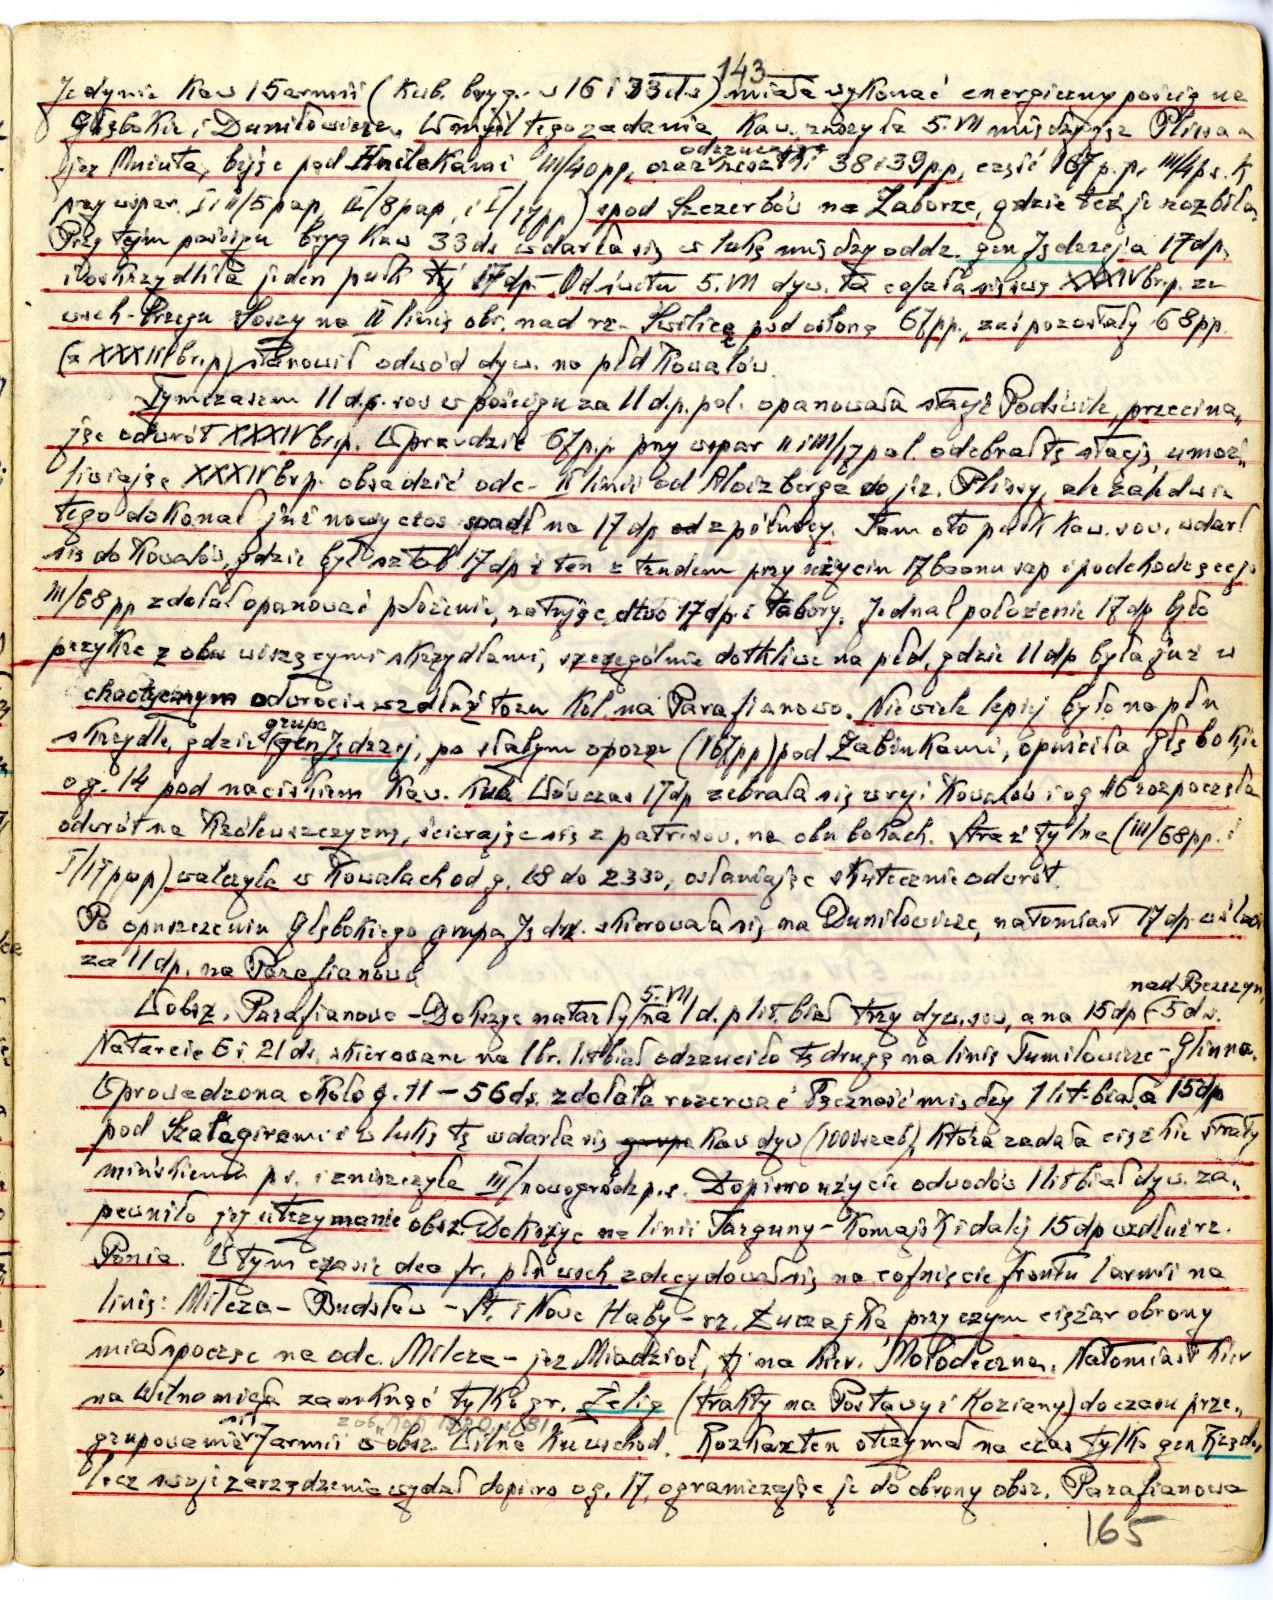 143
Jedynie kaw 15 armii (Kub. bryg. w 16 i 33 ds) miała wykonać energiczny pościg na
Głębokie i Duniłowicze. W myśl tego zadania, kaw. ruszyła 5.VII między jez Plissa a
jez Mniuta, bijąc pod Hniłakami III/40pp, oraz odrzucając resztki 38 i 39pp, część 167 p.p, III/4 p.s.K
przy wspar. I i II/5pap, II/8pap, i I/17pp) spod Szczerbów na Zaborze, gdzie też je rozbiła.
Przy tejm pościgu bryg kaw 33ds wdarła się w lukę między oddz. gen Jędrzeja a 17dp,
i oskrzydliła jeden pułk tej 17dp. Od świtu 5.VII dyw. ta cofała się swą XXXIV br.p. ze
wsch. brzegu Soszy na II linię obr. nad rz. Świlicą pod osłoną 67pp, zaś pozostały 68pp.
(z XXXIV br.p) stanowił odwód dyw. na płd Kowalów.
Tymczasem 11 d.p. sow w pościgu za 11 d.p. pol. opanowała stację Podświle, przecina„
jąc odwrót XXXIV br.p. Wprawdzie 67p.p przy wspar II i III/17 pol. odebrał tę stację, umoż„
liwiając XXXIV br.p. obsadzić odc. II linii od do jez. Plissy, ale zaledwie
tego dokonał już nowy cios spadł na 17dp od północy. Tam oto pułk kaw. sow. wdarł
się do Kowalów, gdzie był sztab 17dp i ten z trudem przy użyciu 17 baonu sap i podchodzącego
III/68pp zdołał opanować położenie, ratując dtwo 17dp i tabory. Jednak położenie 17dp było
przykre z obu wiszącymi skrzydłami, szczególnie dotkliwe na płd, gdzie 11dp była już w
chaotycznym odwrocie wzdłuż toru kol. na Parafianowo. Niewiele lepiej było na płn
skrzydle, gdzie grupa gen Jędrzej, po stałym oporze (167pp) pod Zabinkami, opuściła Głębokie
o g. 14 pod naciskiem kaw. Kub. Wówczas 17dp zebrała się w rej. Kowalów i o g 16 rozpoczęła
odwrót na Królewszczyznę, ścierając się z patr. sow. na obu bokach. Straż tylna (III/68pp. i
I/17pap) walczyła w Kowalach od g. 18 do 2330, osłaniając skutecznie odwrót.
Po opuszczeniu Głębokiego grupa Jędrz. skierowała się na Duniłowicze, natomiast 17dp w ślad
za 11dp. na Parafianowo
W obsz. Parafianowo - Dokszyce natarły 5.VII na 1 d.p lit. biał trzy dyw. sow, a na 15dp - 5 ds. nad Berezyn,
Natarcie 6 i 21 ds, skierowane na 1 br. lit biał odrzuciło tę drugą na linię Tumiłowicze - Glinna.
Wprowadzona około g. 11 - 56ds. zdołała rozerwać łączność między 1 lit-biał. a 15dp
pod Szałagirami i w lukę tę wdarła się kaw dyw (1000 szab), która zadała ciężkie straty
mińskiemu p.s. i zniszczyła III/nowogródz p.s. Dopiero użycie odwodów 1 lit biał dyw. za„
pewniło jej utrzymanie obsz. Dokszyc na linii Targuny - Komajsk i dalej 15dp wzdłuż rz.
Ponia. W tym czasie dca fr. płn wsch zdecydował się na cofnięcie frontu 1 armii na
linię: Milcza - Budsław - St. i Nowe Haby - rz. Żuczajka przy czym ciężar obrony
miał spocząć na odc. Milcza - jez Miadzioł, tj na kier. Mołodeczna. Natomiast kier
na Wilno miała zamknąć tylko gr. Żelig (trakty na Postawy i Koziany) do czasu prze„
grupowania się 7 armii w obsz. Wilna ku wschod. Rozkaz ten otrzymał na czas tylko gen Rządk,
lecz swoje zarządzenia wydał dopiero o g. 17, ograniczając je do obrony obsz. Parafianowa
165